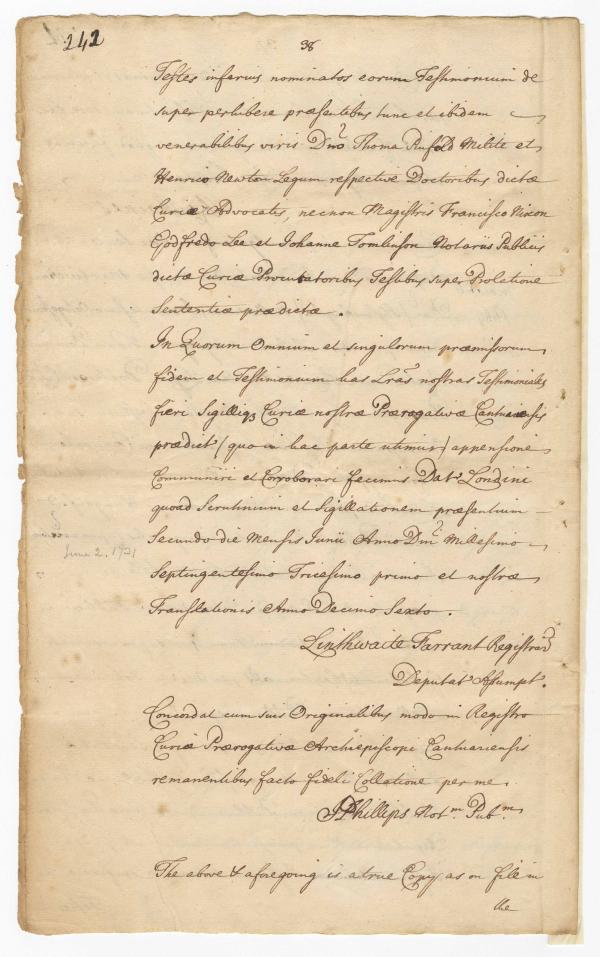 242
38
Testes inferius nominatos eorum Testimonium de
super perhibere præsentibus tunc et ibidem
venerabilibus viris Dno Thoma Penfold Milite et
Henrico Newton Legum respective Doctoribus dictæ
Curiæ Advocatis, necnon Magistris Francisco Nixon
Godfredo Lee et Johanne Tomlinson Notariis Publicis
dictæ Curiæ Procuratoribus Testibus super Prolatione
Sententiæ prædictæ.
In Quorum Omnium et singulorum præmissorum
fidem et Testimonium has Lrãs nostras Testimoniales
fieri Sigilliqȝ Curiæ nostræ Prærogativæ Cantuariensis
prædict (quo in hac parte utimur) appensione
Communiri et Corroborari fecimus Dat. Londini
quoad Scrutinium et Sigillationem præsentium
Secundo die Mensis Junii Anno Dni Millesimo
Septingentesimo Tricesimo primo et nostræ
June 2. 1731
Translationis Anno Decimo Sexto.
Linthwaite Farrant Registrar
Deputat. Assumpt.
Concordat cum suis Originalibus modo in Registro
Curiæ Prærogativæ Archiepiscopi Cantuariensis
remanentibus facto fideli Collatione per me
JPhillips Not.m Pub.m
The above & aforegoing is a true Copy as on file in
the